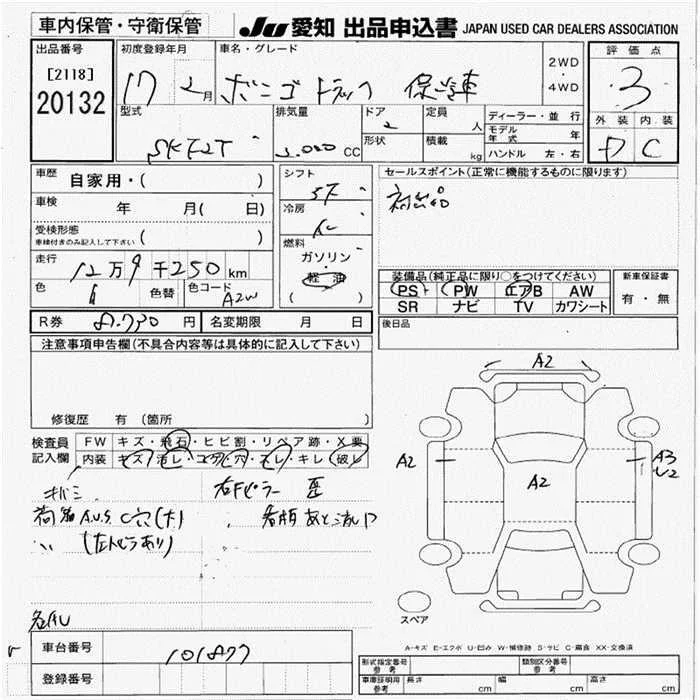 車内保管・守衛保管 JU 愛知 出品申込書 JAPAN USED CAR DEALERS ASSOCIATION
出品番号 初度登録年月 車名・グレード 評価点
[2118]
20132
17 2月 ボンゴ トラック 保冷車 2WD・4WD 3
型式 排気量 ドア 定員 ディーラー・並行 外装 内装
SKF2T 2.000 CC 2 人 モデル年式 年 D C
形状 積載 kg ハンドル 左・右
車歴 自家用・( ) シフト 5F セールスポイント(正常に機能するものに限ります)
車検 年 月( 日) 冷房 AC 初出品
受検形態 車検付きのみ記入して下さい ( ) 燃料 ガソリン・軽油 ( )
走行 12万9千250km 装備品(純正品に限り○をつけてください) 新車保証書
色 白 色替 色コード A2W PS PW エアB AW 有・無
SR ナビ TV カワシート
R券 8.730円 名変期限 月 日 後日品
注意事項申告欄(不具合内容等は具体的に記入して下さい)
修復歴 有 (箇所 )
検査員記入欄 FW キズ・飛石・ヒビ割・リペア跡・X要
内装 キズ・汚レ・コゲ・穴・スレ・キレ・破レ
キバミ 右Fピラー 歪
A.U.S. C穴(大) 看板あと
A2
A2 A2 A3
U2
スペア
A-キズ E-エクボ U-凹み W-補修跡 S-サビ C-腐食 XX-交換済
各AU
車台番号 101877
登録番号
形式指定番号 参考 類別区分番号 参考
車庫証明用 参考 長さ cm 巾 cm 高さ cm